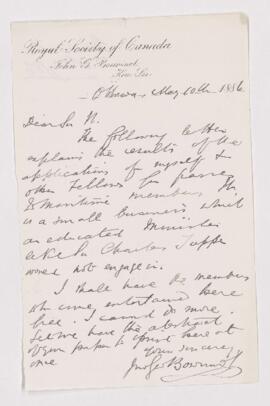 Royal Society of Canada
John G. Bourinot,
Hon. Sec.
Ottawa, May 10th 1886
Dear Sir W.
The following letter
explains the results of the
application of myself &
other Fellows for passes
to Maritime members. This
is a small business which
an educated Minister
like Sir Charles Tupper
would not engage in.
I shall have the members
who come, entertained here
free. I cannot do more.
Let me have the abstract
of your paper to print here at
once
Yours sincerely
Jno Geo Bourinot